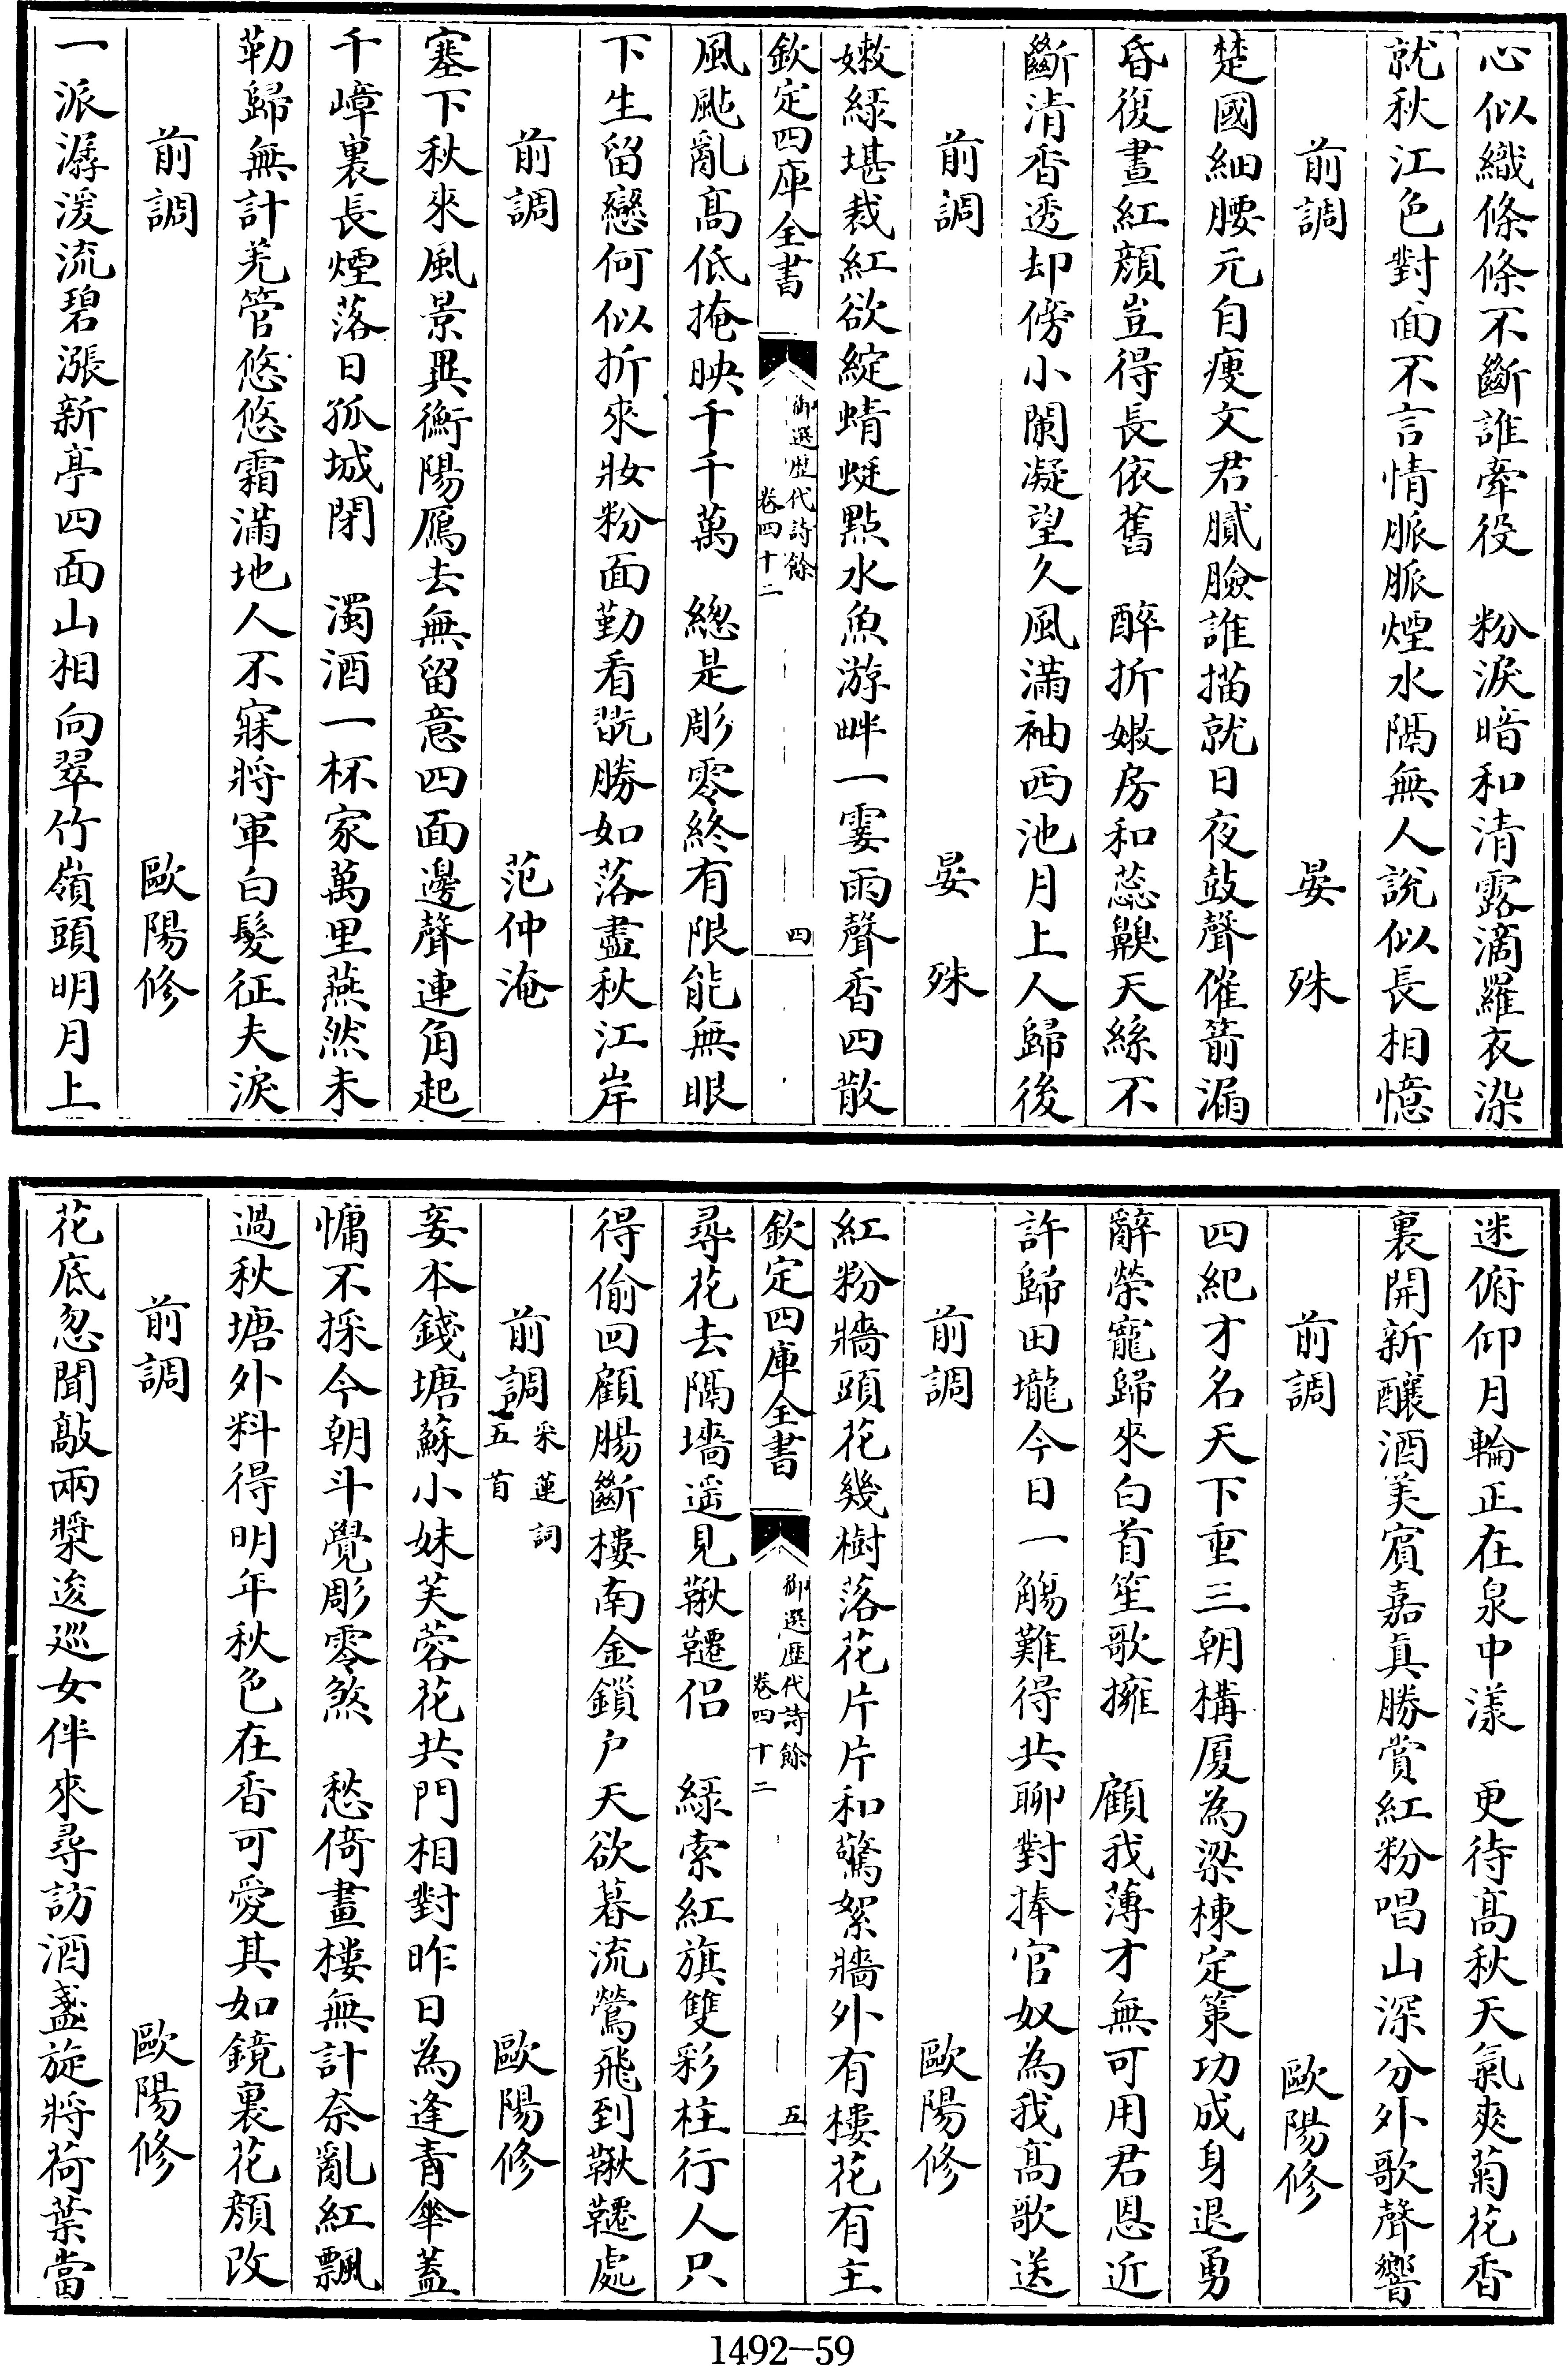 心似織條條不斷誰牽役　粉淚暗和清露滴羅衣染
就秋江色對面不言情脈脈煙水隔無人說似長相憶
前調　晏殊
楚國細腰元自瘦文君膩臉誰描就日夜鼓聲催箭漏
昏復晝紅顔豈得長依舊　醉折嫩房和蕊齅天絲不
斷清香透却傍小闌凝望久風滿袖西池月上人歸後
前調　晏殊
嫩緑堪裁紅欲綻蜻蜓點水魚游畔一霎雨聲香四散
欽定四庫全書　御選歴代詩餘　卷四十二　四
風颭亂髙低掩映千千萬　總是彫零終有限能無眼
下生留戀何似折來妝粉面勤看翫勝如落盡秋江岸
前調　范仲淹
塞下秋來風景異衡陽鴈去無留意四面邊聲連角起
千嶂裏長煙落日孤城閉　濁酒一杯家萬里燕然未
勒歸無計羌管悠悠霜滿地人不寐將軍白髪征夫淚
前調　歐陽修
一派潺湲流碧漲新亭四面山相向翠竹嶺頭明月上
迷俯仰月輪正在泉中漾　更待髙秋天氣爽菊花香
裏開新釀酒美賓嘉真勝賞紅粉唱山深分外歌聲響
前調　歐陽修
四紀才名天下重三朝構厦為梁棟定策功成身退勇
辭榮寵歸來白首笙歌擁　顧我薄才無可用君恩近
許歸田壠今日一觴難得共聊對捧官奴為我髙歌送
前調　歐陽修
紅粉牆頭花幾樹落花片片和驚絮牆外有樓花有主
欽定四庫全書　御選歴代詩餘　卷四十二　五
尋花去隔墻遥見鞦韆侣　緑索紅旗雙彩柱行人只
得偷回顧腸斷樓南金鎖户天欲暮流鶯飛到鞦韆處
前調采蓮詞五首　歐陽修
妾本錢塘蘇小妹芙蓉花共門相對昨日為逢青傘蓋
慵不採今朝斗覺彫零煞　愁倚畫樓無計奈亂紅飄
過秋塘外料得明年秋色在香可愛其如鏡裏花顔改
前調　歐陽修
花底忽聞敲兩槳逡巡女伴來尋訪酒盞旋將荷葉當
1492-59